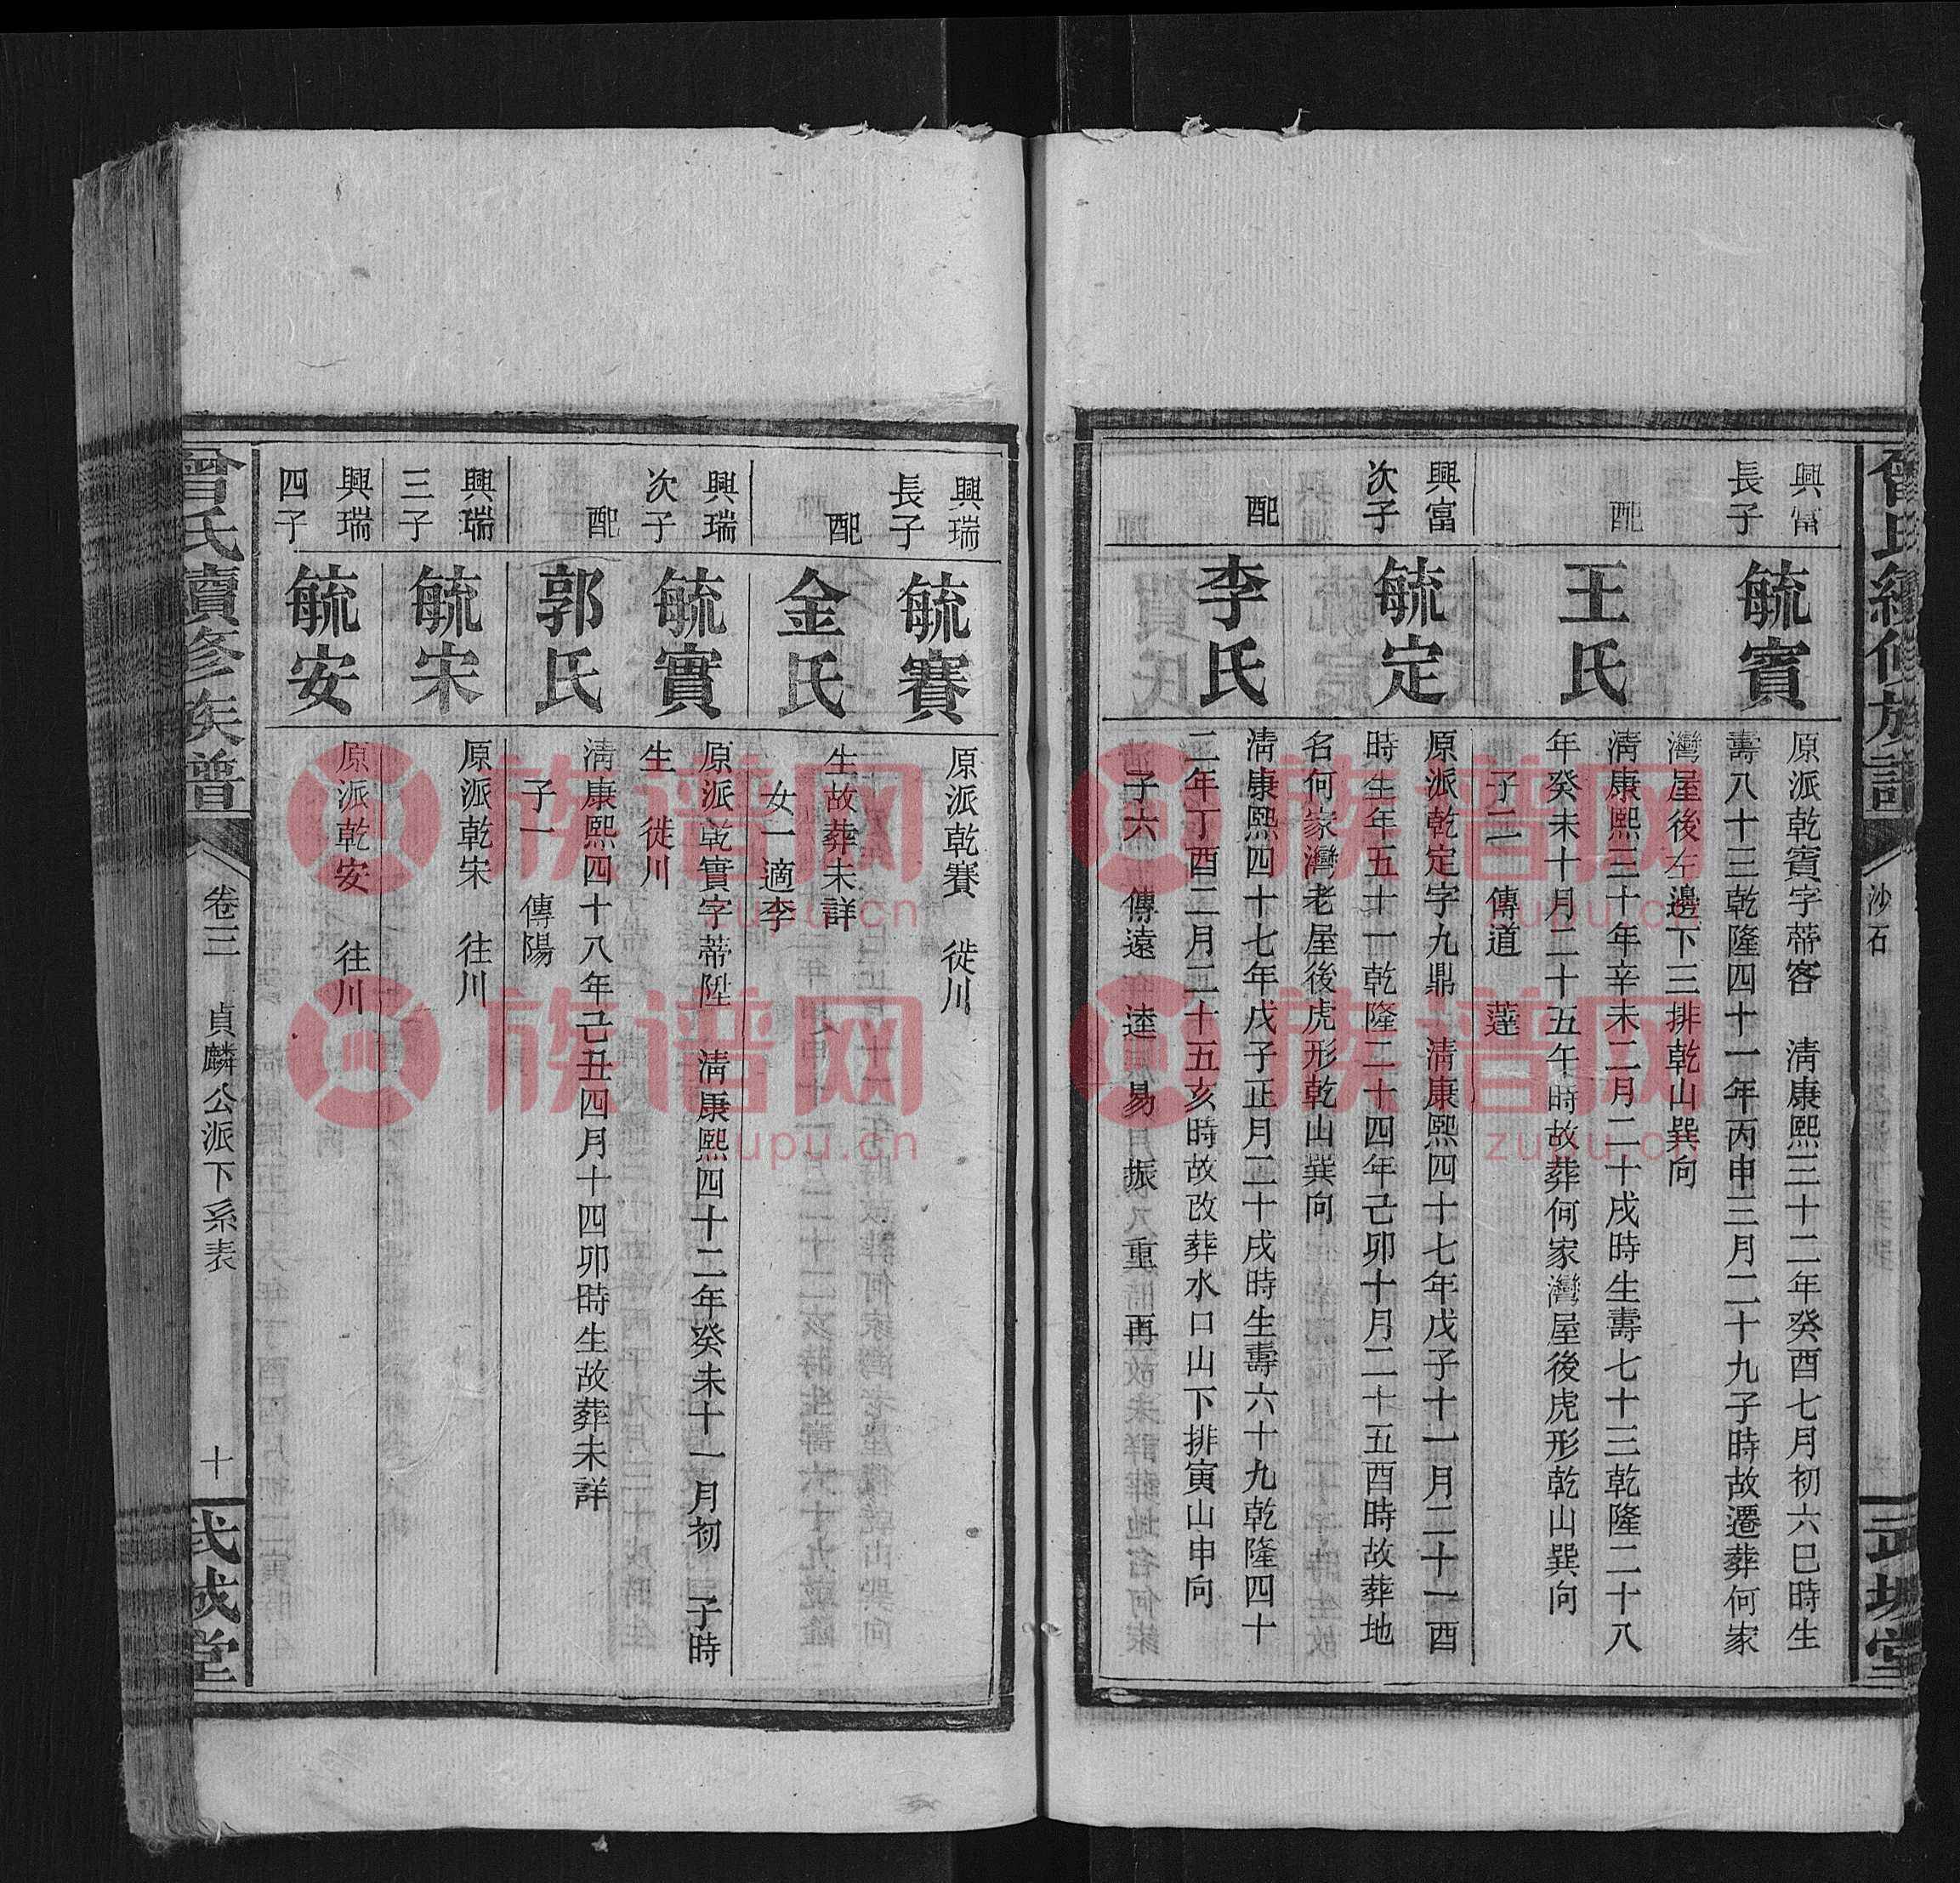 沙石
興富
長子
毓賓
原派乾賓字蒂客　淸康熙三十二年癸酉七月初六巳時生
壽八十三乾隆四十一年丙申三月二十九子時故遷葬何家
灣屋後左邊下三排乾山巽向
配
王氏
淸康熙三十年辛未二月二十戌時生壽七十三乾隆二十八
年癸未十月二十五午時故葬何家灣屋後虎形乾山巽向
子二　傳道　薘
興富
次子
毓定
原派乾定字九鼎　淸康熙四十七年戊子十一月二十一酉
時生年五十一乾隆二十四年己卯十月二十五酉時故葬地
名何家灣老屋後虎形乾山巽向
配
李氏
淸康熙四十七年戊子正月二十戌時生壽六十九乾隆四十
二年丁酉二月二十五亥時故改葬水口山下排寅山申向
子六　傳遠　逵　易　振　重　再
興瑞
長子
毓賽
原派乾賽　徙川
配
金氏
生故葬未詳
女一適李
興瑞
次子
毓實
原派乾實字蒂陞　淸康熙四十二年癸未十一月初　子時
生　徙川
配
郭氏
淸康熙四十八年己丑四月十四卯時生故葬未詳
子一　傳陽
興瑞
三子
毓宋
原派乾宋　往川
興瑞
四子
毓安
原派乾安　往川
曾氏續修族譜
卷三　貞麟公派下系表
十
武城堂
族谱网
zupu.cn
族谱网
zupu.cn
族谱网
zupu.cn
族谱网
zupu.cn